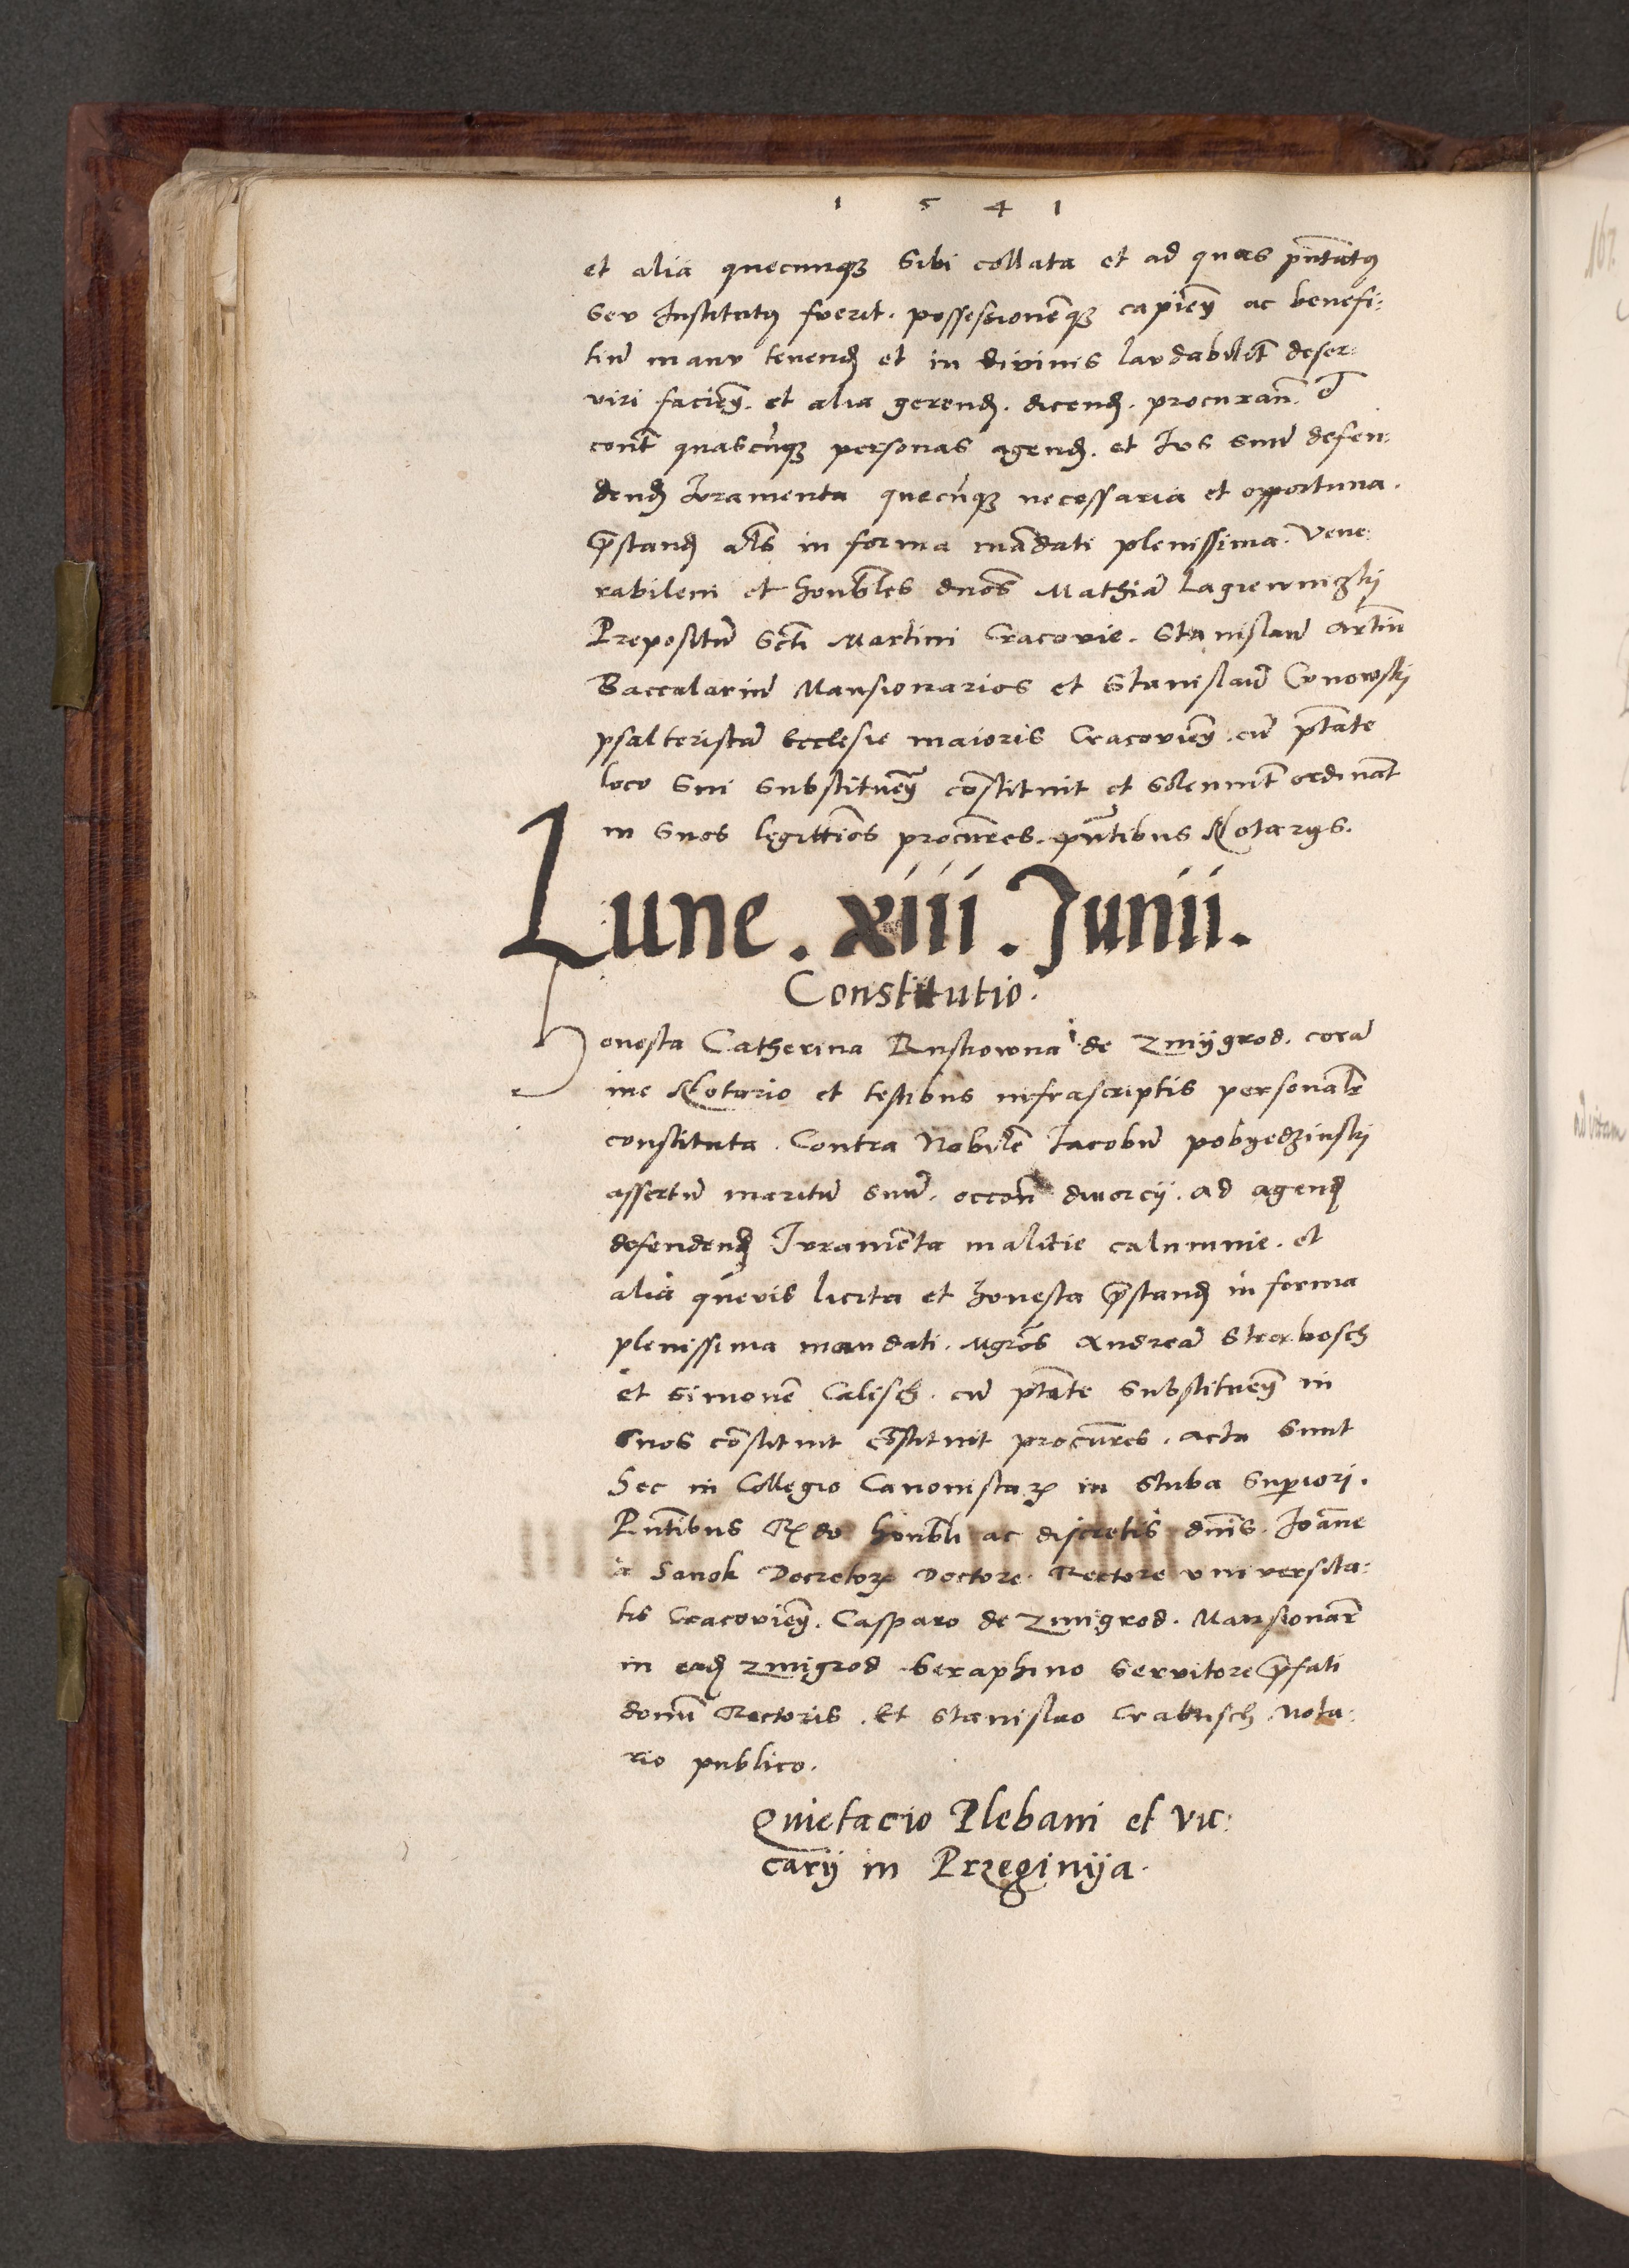 1 5 4 1
et alia quecunqꝫ sibi collata et ad quas pñtatꝯ
seu Institutꝯ fuerit. possessionẽqꝫ capieñ ac benefi:
tiũ manu tenenđ et in divinis laudabilit̃ deser:
viri facieñ. et alia gerenđ. dicenđ. procurañ.
cont̃ quascũqꝫ personas agenđ. et Ius suũ defen:
denđ Iuramenta quecũqꝫ necessaria et opportuna.
p̃standđ als̃ in forma mãdati plenissima. Vene:
rabilem et honorab̃les dnõs Mathiã Lagiewniczkij
Prepositũ Sctĩ Martini Cracovie. Stanislaũ artiũ
Baccalariũ Mansionarios et Stanislaũ Cunowskij
psalteristã Ecclesie maioris Cracovieñ. cũ ptãte
loco sui substitueñ cõstituit et solennit̃ ordinat̃
in suos legittĩos procũres. pñtibus Notarijs.
Lune. xiii. Junii.
Constitutio.
Honesta Catherina Ruskowna de Zmijgrod. corã
me Notario et testibus infrascriptis personalr̃
constituta. Contra Nobilẽ Iacobũ pobyedzinskij
assertũ maritũ suũ. occoñ divorcij. ad agenđ
defendenđ Iuramẽta malitie calumnie. et
alia quevis licita et honesta p̃standđ in forma
plenissima mandati. Mgrõs Andreã Strosbosch
et Simonẽ Calisch. cũ ptãte substitueñ in
suos cõstituit cõstituit procũres. acta sunt
hec in Collegio Canonistaꝝ in stuba superiori.
Pñtibus Rdo honorab̃li ac discretis dnĩs. Ioãne
a Sanok Decretoꝝ Doctore. Rectore universita:
tis Cracovieñ. Casparo de Zmigrod. Mansionar̃
in eađ Zmigrod. Seraphino servitore p̃fati
domĩ Rectoris. Et Stanislao Crabusch Nota:
rio publico.
Quietacio Plebani et vic:
carij in Przeginija.